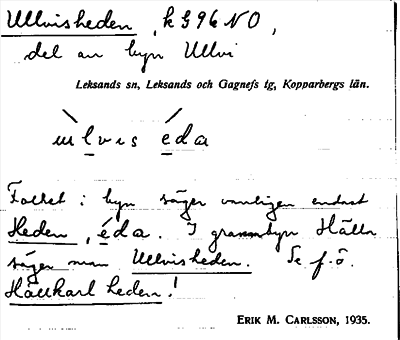 Ullvisheden, k G 96 NO,
del av byn Ullvi
Leksands sn, Leksands och Gagnefs tg, Kopparbergs län.
ulvis eda
Folket i byn säger vanligen endast
Heden, éda. I grannbyn Hälla
säger man Ullvisheden. Se f.ö.
Hållkarlheden!
ERIK M. CARLSSON, 1935.